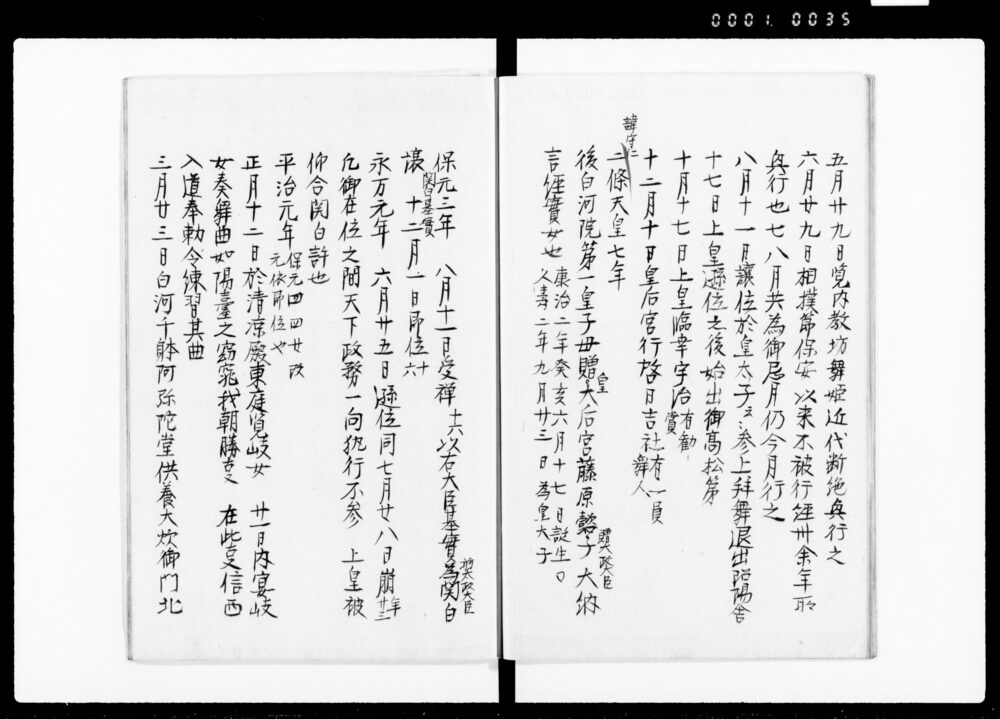 0001 0035
五月廿九日覧内教坊舞姫近代断絶興行之
六月廿九日相撲節保安以来不被行経卅余年
興行也七八月共為御忌月仍今月行之
八月十一日譲位於皇太子ミ参上拝舞退出昭陽舎
十七日上皇遜位之後始出御高松第
十月十七日上皇臨幸宇治 有勧賞
十二月十日皇后宮行啓日吉社有舞人一員
諱守仁
二條天皇七年
後白河院第一皇子母贈皇太后宮藤原懿子大納
贈太政大臣
言経實女也 康治二年癸亥六月十七日誕生〇
久寿二年九月廿三日為皇太子
保元三年 八月十一日受禅 十六 以右大臣基實為関白
譲 関白基實 十二月一日即位 十六
永万元年 六月廿五日遜位同七月廿八日崩 年廿三
凡御在位之間天下政務一向執行不参 上皇被
仰合関白許也
平治元年 保元四四廿改
元依即位也
正月十二日於清涼殿東庭覧岐女 廿一日内宴岐
女奏舞曲如陽臺之窈窕我朝勝事 在此事信西
入道奉勅令練習其曲
三月廿三日白河千躰阿弥陀堂供養大炊御門北